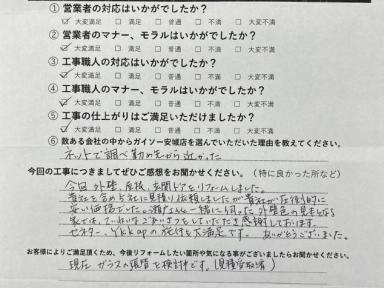 ① 営業者の対応はいかがでしたか?
☑ 大変満足 □ 満足 □ 普通 □ 不満 □ 大変不満
② 営業者のマナー、モラルはいかがでしたか?
☑ 大変満足 □ 満足 □ 普通 □ 不満 □ 大変不満
③ 工事職人の対応はいかがでしたか?
☑ 大変満足 □ 満足 □ 普通 □ 不満 □ 大変不満
④ 工事職人のマナー、モラルはいかがでしたか?
☑ 大変満足 □ 満足 □ 普通 □ 不満 □ 大変不満
⑤ 工事の仕上がりはご満足いただけましたか?
☑ 大変満足 □ 満足 □ 普通 □ 不満 □ 大変不満
⑥ 数ある会社の中からガイソー安城店を選んでいただいた理由を教えてください。
ネットで調べ勤め先から近かった
今回の工事につきましてぜひご感想をお聞かせください。(特に良かった所など)
今回外壁、屋根、玄関ドアをリフォームしました。
貴社を含め5社に見積り依頼しましたが貴社が圧倒的に
安い価格だった。一緒に伺った外壁色の見本になる
家では、ていねいなごあいさつをしていただき感謝しております。
YKKapの施行も大満足です。ありがとうございました。
お客様によりご満足頂くため、今後リフォームしたい箇所や気になる事がございましたらお聞かせください。
現在 ガラスの張替を検討中です。(見積受取済)